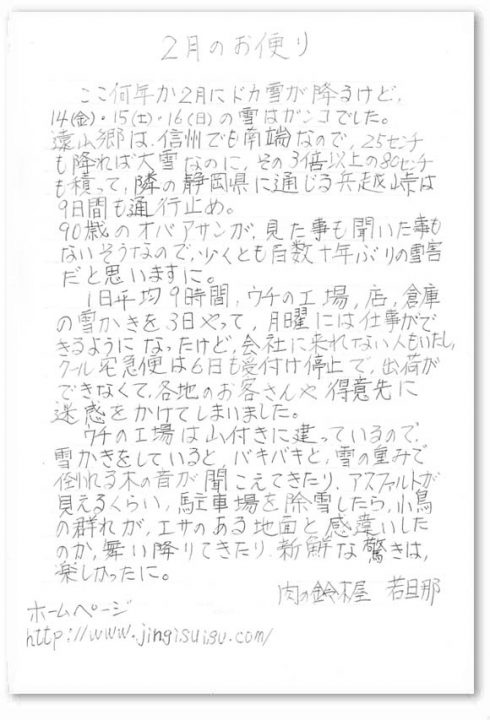 2月のお便り
ここ何年か2月にドカ雪が降るけど、
14(金)・15(土)・16(日)の雪はガンコでした。
遠山郷は、信州でも南端なので、25センチ
も降れば大雪なのに、その3倍以上の80センチ
も積って、隣の静岡県に通じる兵越峠は
9日間も通行止め。
90歳のオバアサンが、見た事も聞いた事も
ないそうなので、少くとも百数十年ぶりの雪害
だと思いますに。
1日平均9時間、ウチの工場,店,倉庫
の雪かきを3日やって、月曜には仕事がで
きるようになったけど、会社に来れない人もいたし、
クール宅急便は6日も受付け停止で、出荷が
できなくて、各地のお客さんや得意先に
迷惑をかけてしまいました。
ウチの工場は山付きに建っているので、
雪かきをしていると、バキバキと、雪の重みで
倒れる木の音が聞こえてきたり、アスファルトが
見えるくらい、駐車場を除雪したら、小鳥
の群れが、エサのある地面と感違いした
のか、舞い降りてきたり、新鮮な驚きは、
楽しかったに。
肉の鈴木屋 若旦那
ホームページ
http://www.jingisuigu.com/